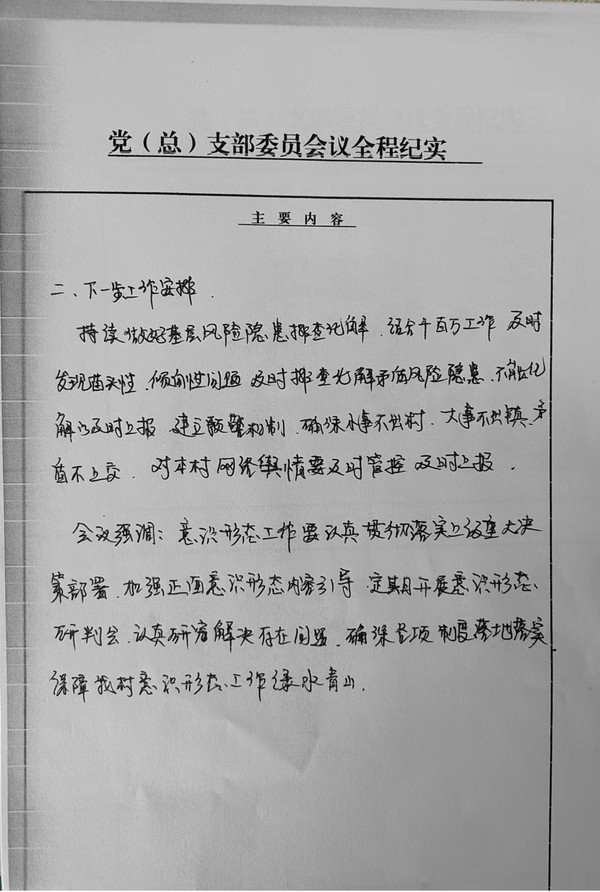 党（总）支部委员会议全程纪实
主要内容
二、下一步工作安排.
持续做好基层风险隐患排查化解. 结合千百万工作 及时
发现苗头性、倾向性问题 及时排查化解矛盾风险隐患, 不能化
解的及时上报. 建立 机制, 确保小事不出村. 大事不出镇, 矛
盾不上交. 对本村网络舆情要及时管控 及时上报.
会议强调: 意识形态工作要认真贯彻落实上级重大决
策部署, 加强正面意识形态内容引导 定期开展意识形态
研判会. 认真研究解决存在问题, 确保各项制度落地落实
保障我村意识形态工作绿水青山.